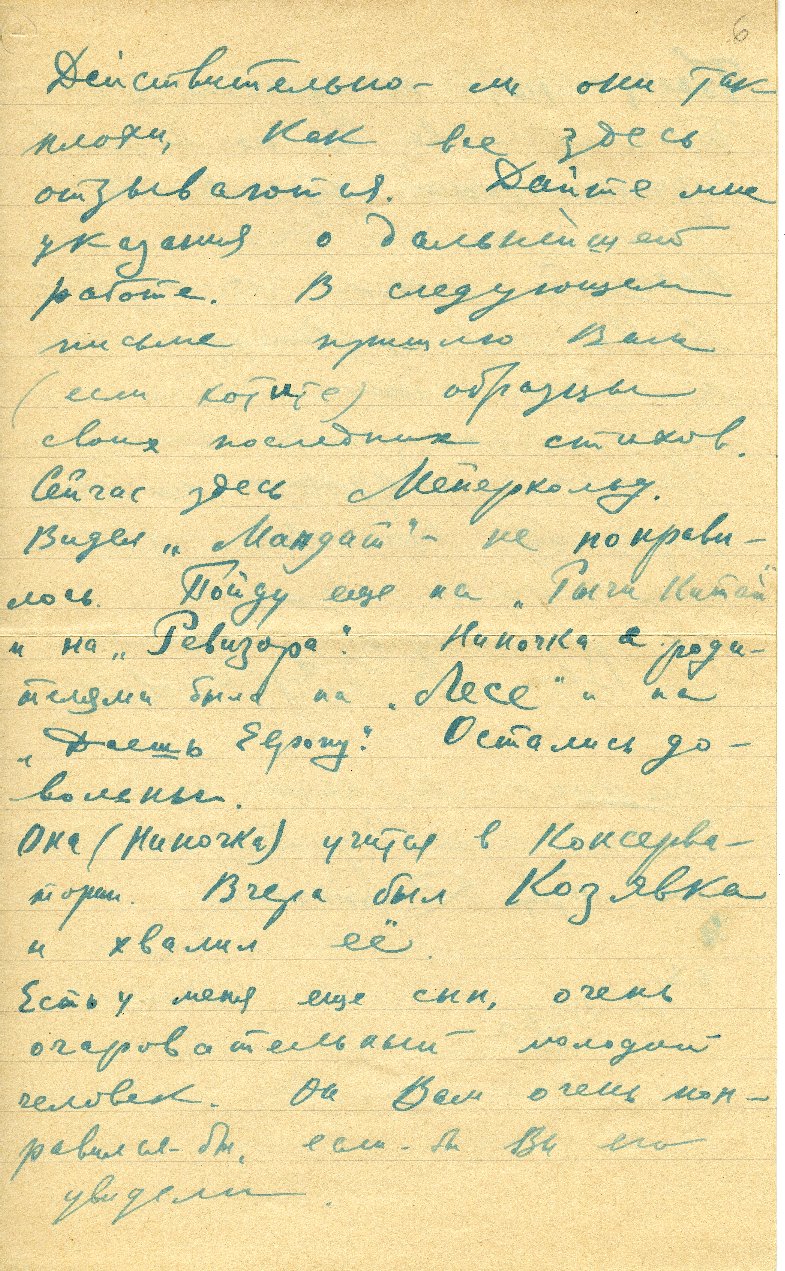 6
Действительно-ли они так
плохи, как все здесь
отзываются. Дайте мне
указания о дальнейшей
работе. В следующем
письме пришлю Вам
(если хотите) образцы
своих последних стихов.
Сейчас здесь Мейерхольд.
Видел „Мандат“ - не понрави-
лось. Пойду еще на „Рычи Китай“
и на „Ревизора“. Ниночка с роди-
телями была на „Лесе“ и на
„Даешь Европу“. Остались до-
вольны.
Она (Ниночка) учится в Консерва-
тории. Вчера был Козявка
и хвалил её.
Есть у меня еще сын, очень
очаровательный молодой
человек. Он Вам очень пон-
равился-бы, если-бы Вы его
увидели.